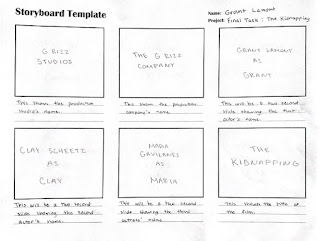 Storyboard Template
Name: Grant Lamont
Project: Final Task : The Kidnapping
GRIZZ
STUDIOS
THE GRIZZ
COMPANY
GRANT LAMONT
AS
GRANT
This shows the production
studio's name.
This shows the production
company's name.
This will be a two second
slide showing the main
actor's name.
CLAY SCHEETZ
AS
CLAY
MARIA
GAVILANES
AS
MARIA
THE
KIDNAPPING
This will be a two second
slide showing the second
actor's name.
This will be a two second
slide showing the third
actress' name.
This shows the title of
the film.